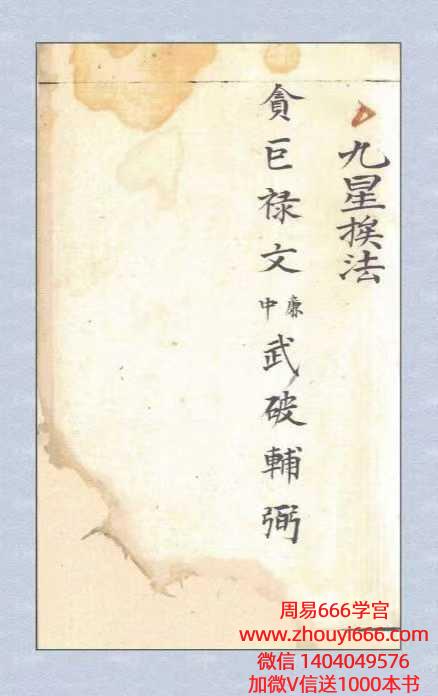 九星挨法
貪巨禄文廉中武破輔弼
周易666学宫
www.zhouyi666.com
微信 1404049576
加微V信送1000本书